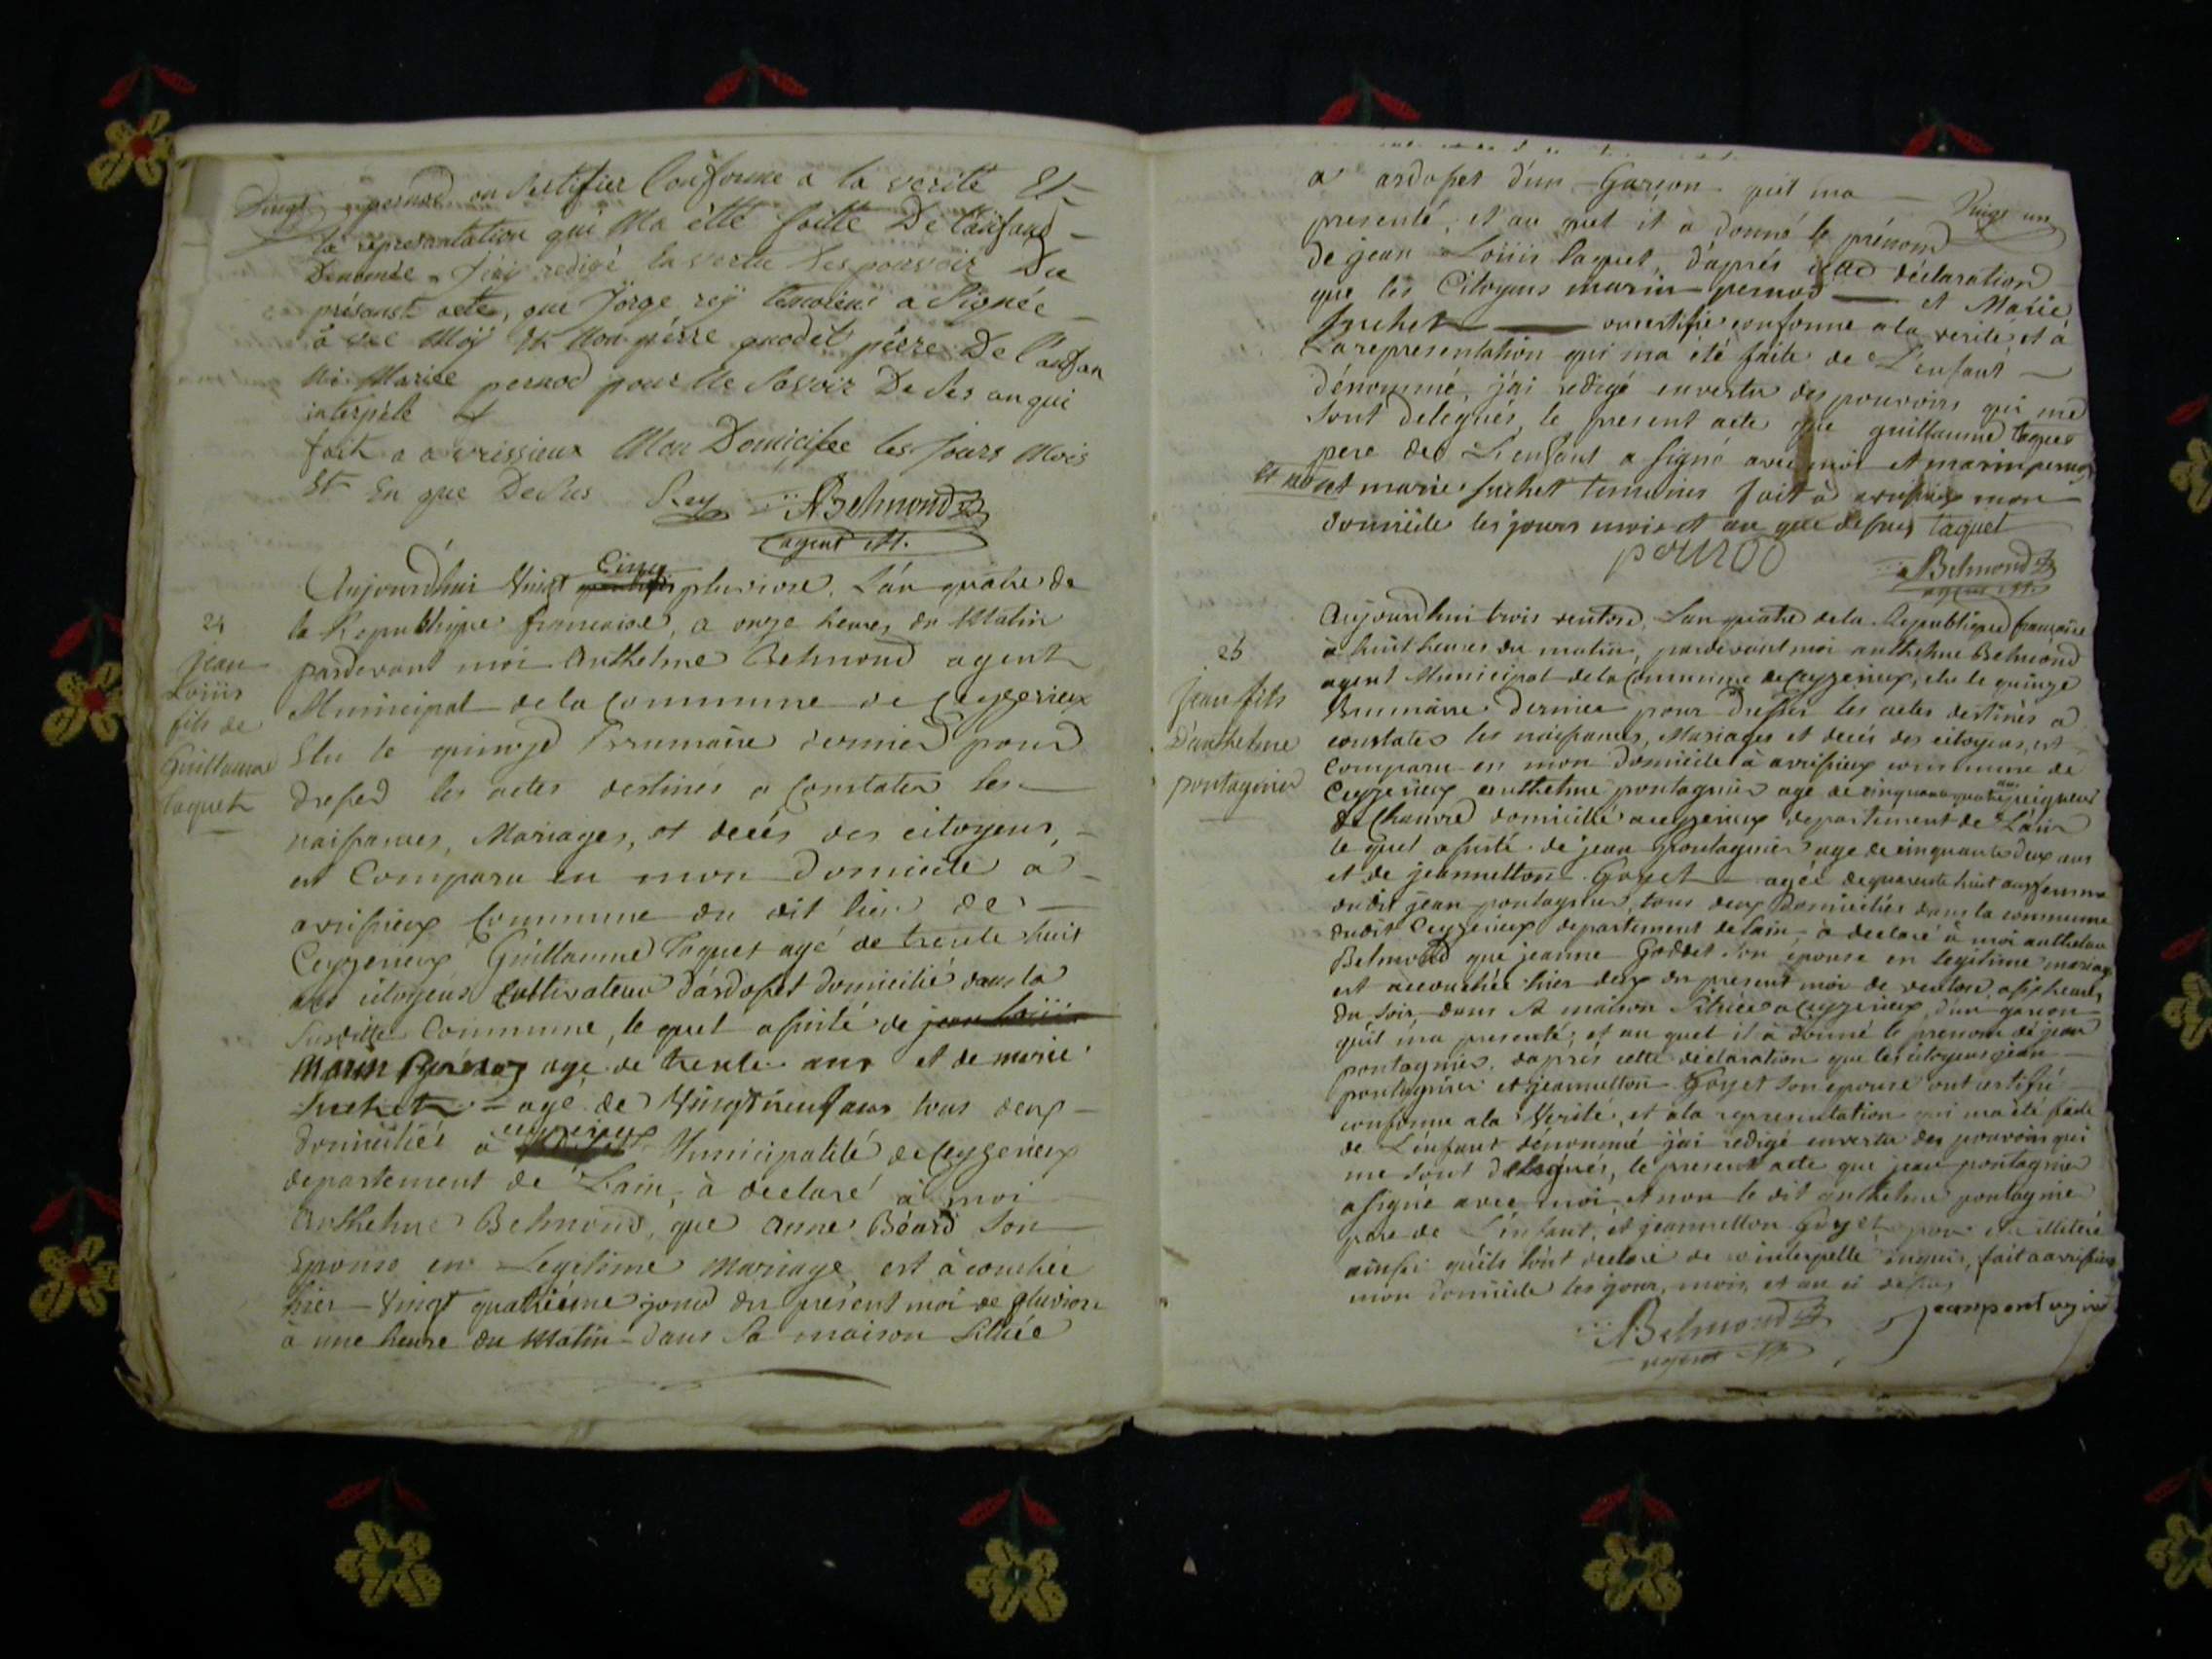 Vingt
pernod on Sertifier Conforme a la verité Et
la representation qui Ma étté faitte De l'anfant
Denomée J'ai redigé en vertu des pouvoir Du
présanst acte, que Jorge rey temoient a Signée
a vec Moy Et Non pierre godet péere De l'anfan
Ni Mariee pernod pour Ne Savoir De Ses en qui
interpéle
fait a avrissieux Mon Domicilee les jours Mois
Et En que Desus Rey ABelmond
agent M.
24
jean
Loüis
fils de
Guillaume
taquet
Cinq
Aujourdhui Vingt pluviose, L'an quatre de
la Republique francaise, a onze heures du Matin
pardevant moi Anthelme Belmond agent
Municipal de la Commune de Ceyzerieux
Elu le quinze Brumaire dernier pour
dresser les actes destinés a Constater les
naissances, Mariages, et decés des citoyens,
est Comparu en mon Domicile a
avrissieux Commune du dit lieu de
Ceyzerieux Guillaume Taquet agé de trente huit
ans citoyens Cultivateur d'ardosset domicilié dans la
Susditte Commune, le quel assisté de jean Loüis
Marin Pernod agé de trente ans et de marie
Suchet agé de Vingt neuf ans tous deux
domiciliés a ceyzerieux Municipalité de Ceyzerieux
departement de Lain, à declaré à moi
Anthelme Belmond, que Anne Béard Son
Epouse en Legitime Mariage, est àcouchée
hier Vingt quatriéme jour du présent moi de pluviose
à une heure du Matin dans Sa maison Sittuée
Vingt un
a ardosset d'un Garçon qu'il ma
presenté, et au quel il a donné le prénom
de jean Loüis taquet, d'après cette déclaration
que les Citoyens marin pernod et Marie
Suchet on certifié conforme a la verité et à
La representation qui ma été faite de L'enfant
dénommé, j'ai redigé en vertu des pouvoirs qui me
Sont delegués, le present acte que guillaume taquet
pere de L'enfant a Signé avec moi et marin pernod
Et non et marie Suchet temoins fait à avrissieux mon
domicile les jours mois et an que dessus taquet
pernod ABelmond
agent M.
25
jean fils
D'anthelme
pontagnier
Aujourdhui trois ventose, L'an quatre de la Republique francaise
à huit heures du matin, pardevant moi anthelme Belmond
agent Municipal de la Commune de Ceyzerieux, elu le quinze
Brumaire dernier pour dresser les actes destinés a
constater les naissances, Mariages et decés des citoyens, est
Comparu en mon domicile à avrissieux commune de
Ceyzerieux anthelme pontagnier agé de cinquante quatre ans peigneur
de Chanvre domicilié a ceyzerieux departement de Lain
le quel assisté de jean pontagnier agé de cinquante deux ans
et de jeannetton Goyet agée de quarante huit ans femme
du dit jean pontagnier, tous deux domiciliés dans la commune
du dit Ceyzerieux departement de Lain, à declaré à moi anthelme
Belmond que jeanne Goddet Son epouse en legitime mariage
est accouchée hier deux du present moi de ventose, a six heures
du Soir, dans Sa maison Sittuée a Ceyzerieux, d'un garcon
qu'il ma presenté, et au quel il à donné le prenom de jean
pontagnier, d'après cette déclaration que les citoyens jean
pontagnier et jeannetton Goyet Son epouse ont certifié
conforme a la Verité, et a la representation qui ma été faite
de L'enfant dénommé j'ai redigé en vertu des pouvoirs qui
me Sont delegués, le present acte que jean pontagnier
a signé avec moi, et non le dit anthelme pontagnier
pere de L'enfant, et jeannetton Goyet pour etre illiteré
ainssi qu'ils l'ont declaré de ce interpelle enquis, fait a avrissieux
mon domicile les jour, mois, et an ci dessus
ABelmond jeanpontagnier
agent M.